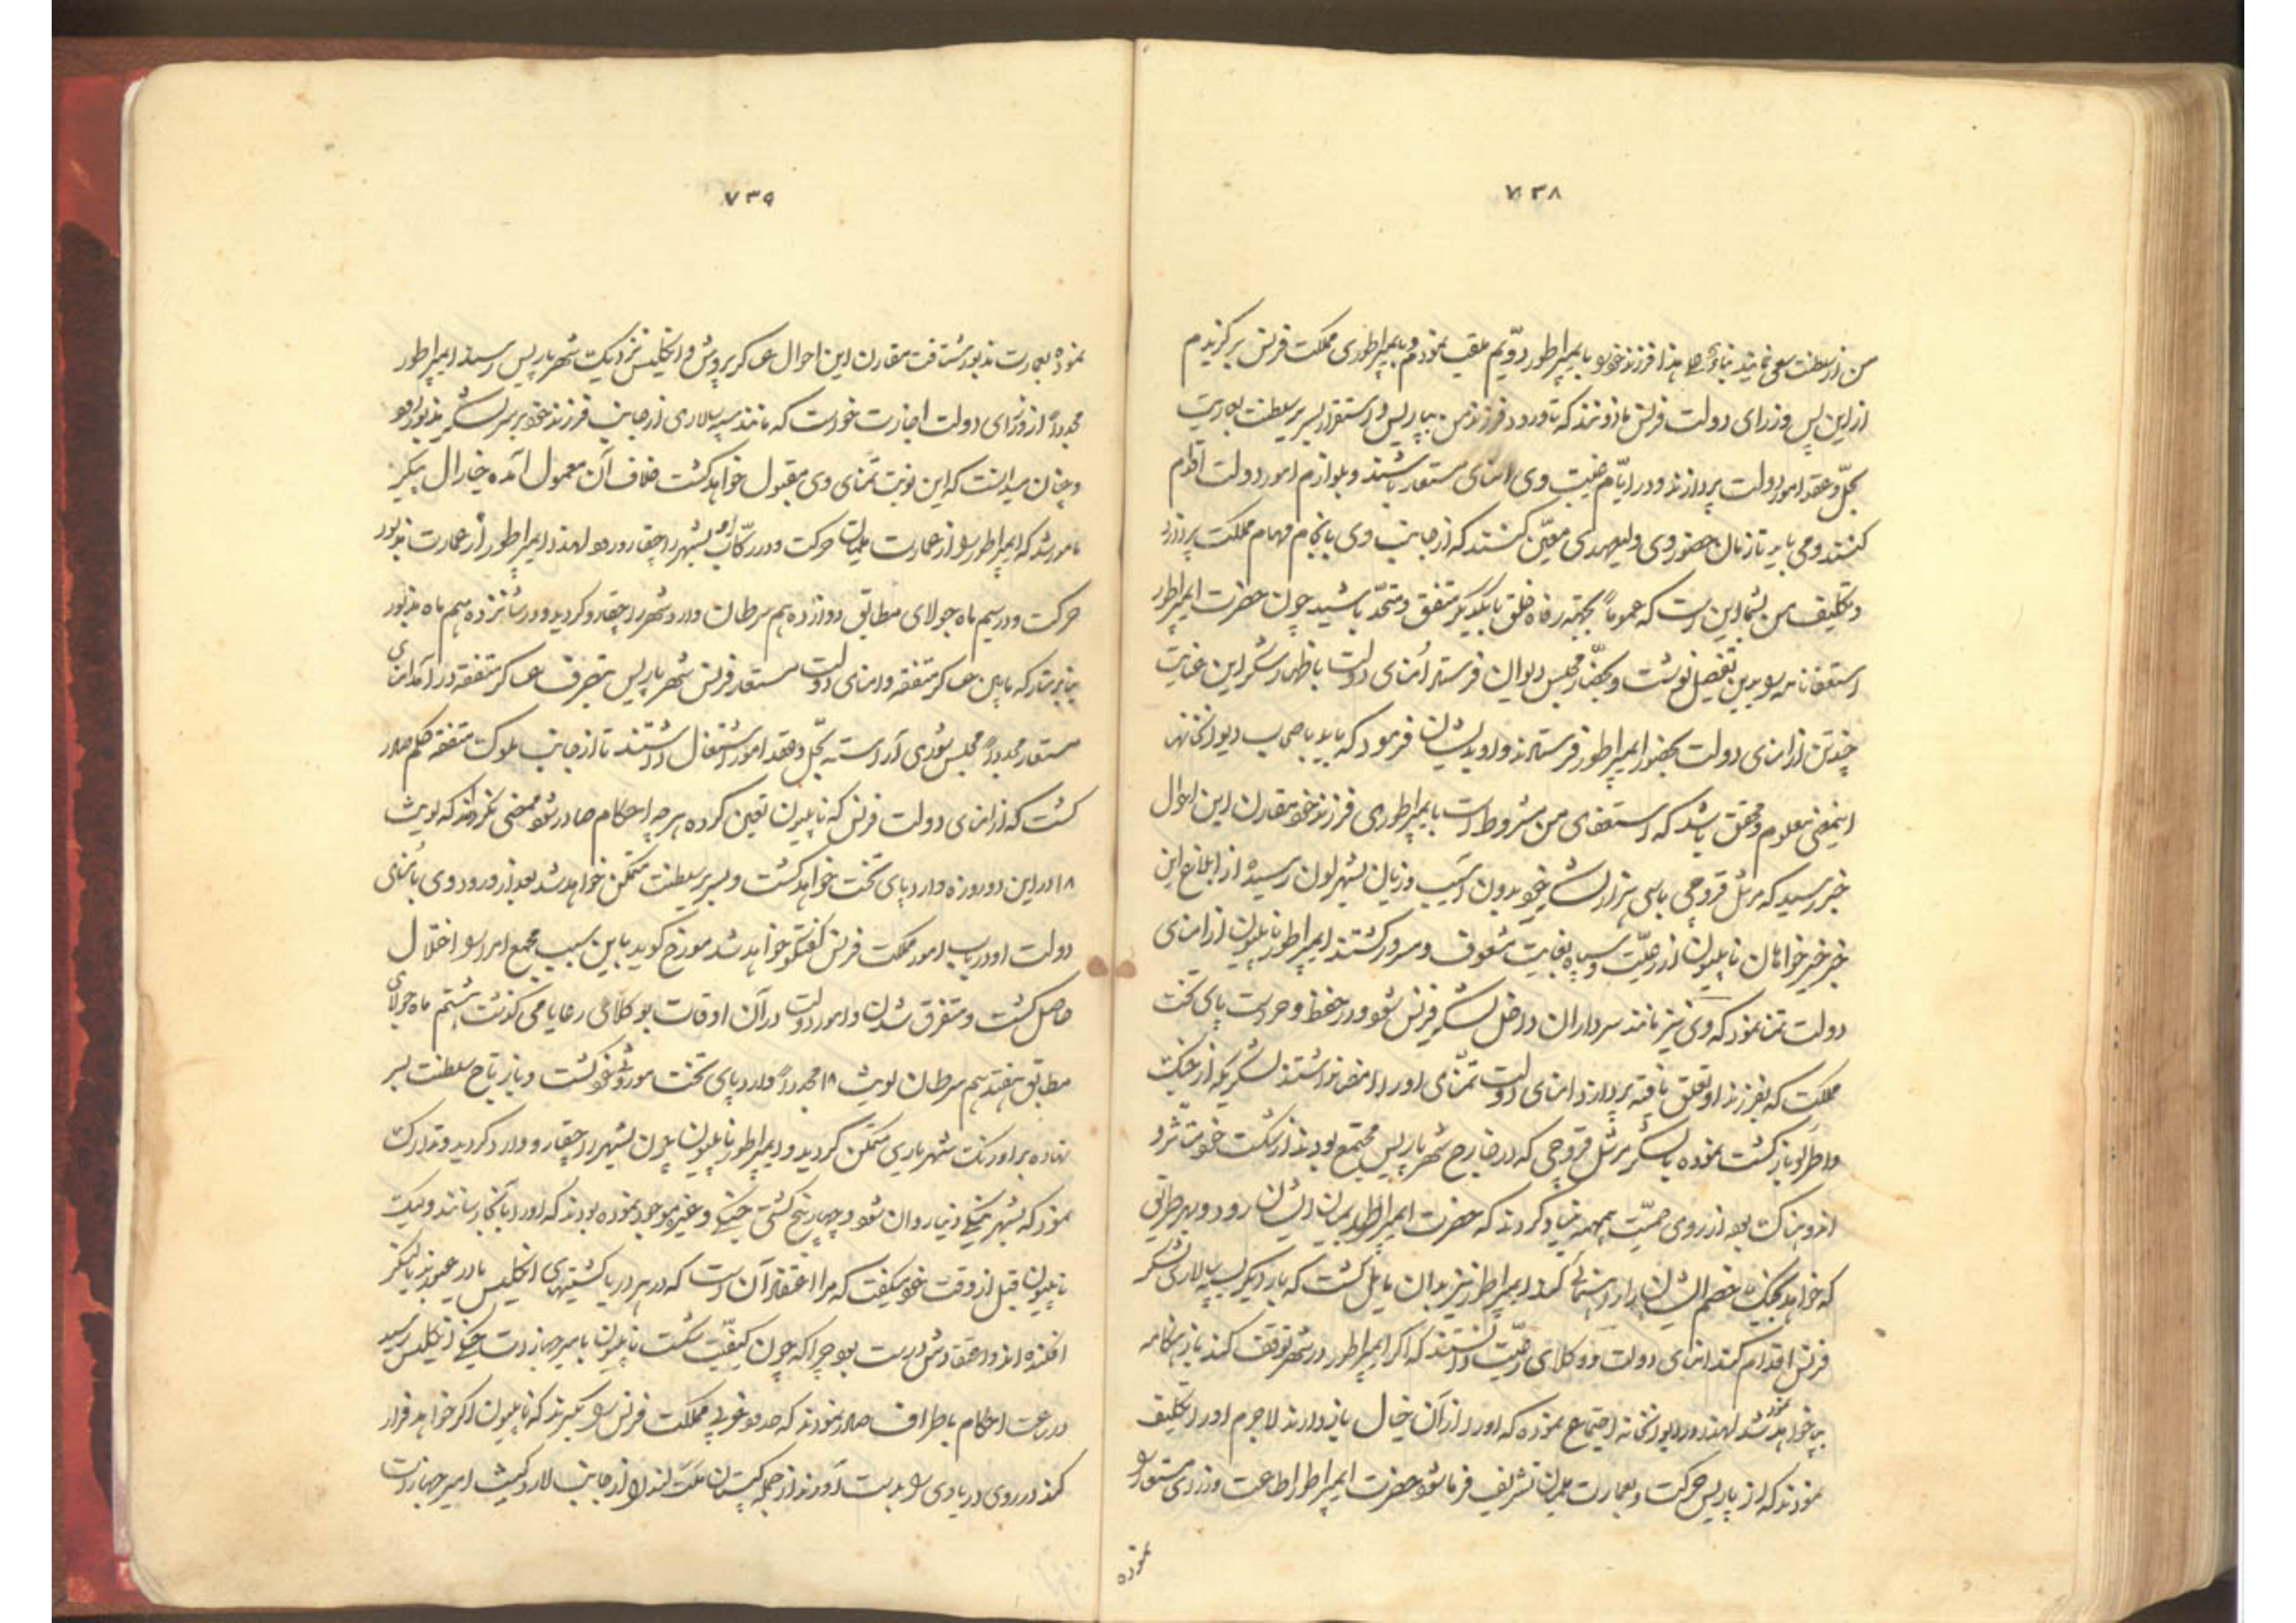 ۷۳۸
من از سلطنت سعی نمایند بناءً علی هذا فرزند خود را بایمپراطور دویم ملقب نمودم و بایمپراطوری مملکت فرنس برگزیدم
از این پس وزرای دولت فرنس ماذونند که تا ورود فرزند من بپاریس و استقرار بسریر سلطنت بوریت
بحل و عقد امور دولت پردازند و در ایام غیبت وی امنای مستعار باشند و بلوازم امور دولت اقدام
کنند و می باید تا زمان حضور وی ولیعهدی معین کنند که از جانب وی بانجام مهام مملکت پردازد
و تکلیف من بشما این است که عموماً بجهته رفاه خلق با یکدیگر متفق و متحد باشید چون حضرت ایمپراطور
استعفانامه را بدین تفصیل نوشت و بحضار مجلس دیوان فرستاد امنای دولت باظهار شکر این عنایت
چند تن از امنای دولت بحضور ایمپراطور فرستادند و او بدیشان فرمود که باید باصحاب دیوانخانه
اینمعنی معلوم و محقق باشد که استعفای من مشروط است بایمپراطوری فرزند خود مقارن این احوال
خبر رسید که مرشل قروچی با سی هزار لشکر خود بدون آسیب و زیان بشهر لون رسیده از ابلاغ این
خبر خیرخواهان ناپلیون از رعیت و سپاه بغایت مشعوف و مسرور گشتند ایمپراطور ناپلیون از امنای
دولت تمنا نمود که وی نیز مانند سرداران داخل لشکر فرنس شود و در حفظ و حراست پای تخت
مملکت که بفرزند او تعلق یافته پردازد امنای دولت تمنای او را امضا نداشتند لشکریکه از جنگ
واطرلو بازگشت نموده با لشکر مرشل قروچی که در خارج شهر پاریس مجتمع بودند از شکست خود متاثر و
اندوهناک بود از روی حمیت همهمه بنیاد کردند که حضرت ایمپراطور بمیان ایشان رود و بهر طریق
که خواهد بجنگ خصم ایشان را راهنمائی کند ایمپراطور نیز بدان مایل گشت که بار دیگر بسپه سالاری لشکر
فرنس اقدام کند امنای دولت و وکلای رعیت دانستند که اگر ایمپراطور در شهر توقف کند باز هنگامه
بپا خواهد شد لهذا در دیوانخانه اجتماع نموده که او را از آن خیال باز دارند لاجرم او را تکلیف
نمودند که از پاریس حرکت و بعمارت ملمیان تشریف فرما شود حضرت ایمپراطور اطاعت وزرای مستعار را
نموده
۷۳۹
نموده بعمارت مذبور شتافت مقارن این احوال عساکر پروش و انگلیس نزدیک شهر پاریس رسید ایمپراطور
مجدداً از وزرای دولت اجازت خواست که مانند سپه سالاری از جانب فرزند خود بر سر لشکر مذبور رود
و چنان میدانست که این نوبت تمنای وی مقبول خواهد گشت خلاف آن معمول آمده جنارال بیکر
مامور شد که ایمپراطور را از عمارت ملمیان حرکت و در رکاب او بشهر راچفارو رود لهذا ایمپراطور از عمارت مذبور
حرکت و در سیم ماه جولای مطابق دوازدهم سرطان وارد شهر راچفارو گردید و در شانزدهم ماه مذبور
بنابر متارکه مابین عساکر متفقه و امنای دولت مستعار فرنس شهر پاریس بتصرف عساکر متفقه درآمد امنای
مستعار مجدداً مجلس شوری آراسته بحل و عقد امور اشتغال داشتند تا از جانب ملوک متفقه حکم صادر
گشت که از امنای دولت فرنس که ناپلیون تعین کرده هر چه احکام صادر شود ممضی نگردانند که لویش
۱۸ در این دو روزه وارد پای تخت خواهد گشت و بسریر سلطنت متمکن خواهد شد بعد از ورود وی با امنای
دولت او در باب امور مملکت فرنس گفتگو خواهد شد مورخ گوید باین سبب مجمع امرا را اختلال
حاصل گشت و متفرق شدن و امور دولت در آن اوقات بوکلای رعایا می گذشت هشتم ماه جولای
مطابق هفتدهم سرطان لویش ۱۸ مجدداً وارد پای تخت موروثی خود گشت و باز تاج سلطنت بسر
نهاده بر اورنگ شهریاری متمکن گردید و ایمپراطور ناپلیون چون بشهر راچفارو وارد گردید و تدارک
نمود که بشهر ینگی دنیا روان شود و چهار پنج کشتی جنگی و غیره موجود نموده بودند که او را بآنجا رسانند ولیک
ناپلیون قبل از وقت خود میگفت که مرا اعتقاد آن است که در هر دریا کشتیهای انگلیس بادر عبور بنده لنگر
افکنده اند و اعتقادش درست بود چرا که چون کیفیت شکست ناپلیون بامیر جهازات جنگی انگلیس رسید
در ساعت احکام باطراف صادر نمودند که حدود غربی مملکت فرنس را بگیرند که ناپلیون اگر خواهد فرار
کند در روی دریا وی را بدست آورند از جمله کپتان ملت لند از جانب لارد کیث امیر جهازات